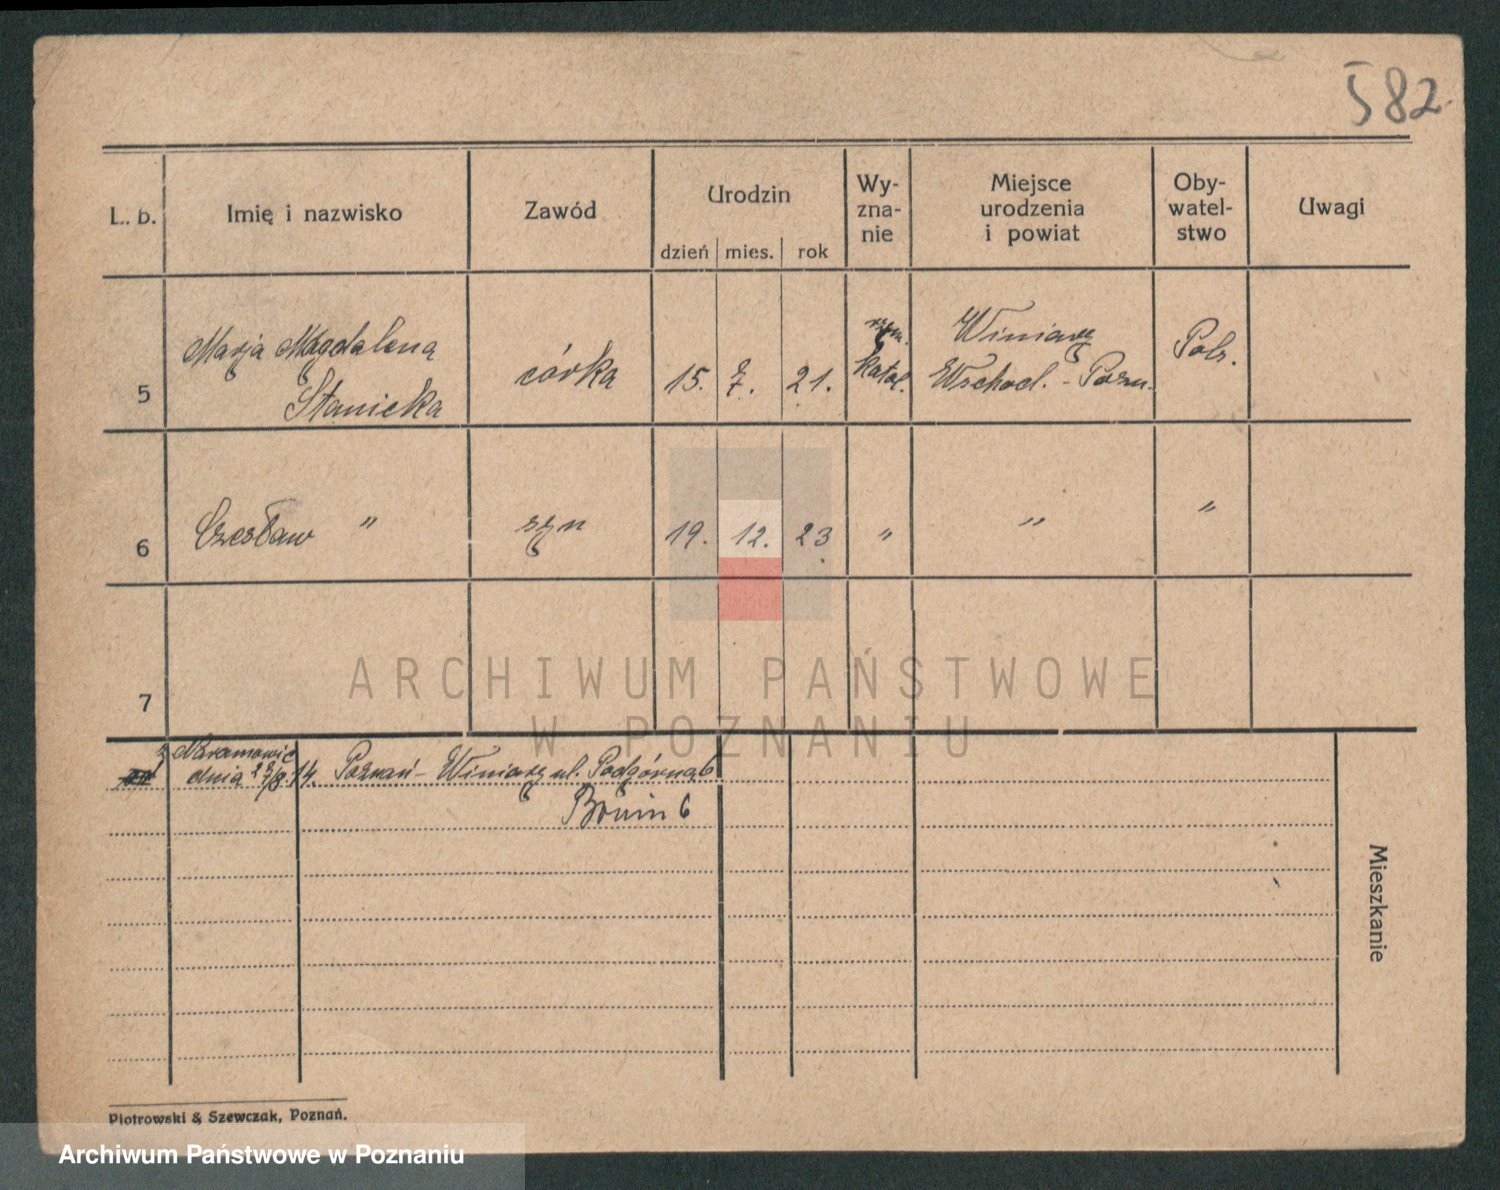 582
L. b.
Imię i nazwisko
Zawód
Urodzin
dzień mies. rok
Wy-
zna-
nie
Miejsce
urodzenia
i powiat
Oby-
watel-
stwo
Uwagi
5
Marja Magdalena
Stanicka
córka
15. 7. 21.
rzym.
katol.
Winiary
Wschod. - Pozn.
Pols.
6
Czesław "
syn
19. 12. 23
"
"
"
7
z Naramowic
dnia 14.
Poznań - Winiary ul. Podgórna 6
Bonin 6
Mieszkanie
Piotrowski & Szewczak, Poznań.
ARCHIWUM PAŃSTWOWE
W POZNANIU
Archiwum Państwowe w Poznaniu